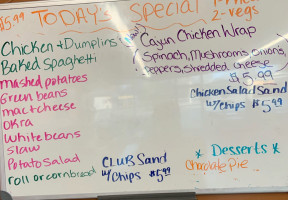 $5.99 TODAY'S Special
2-vegs
Chicken + Dumplins
Baked spaghetti
mashed potatoes
Green beans
mac + cheese
OKra
White beans
slaw
Potato Salad
roll or cornbread
Cajun Chicken Wrap
(Spinach, Mushrooms, Onions,
Peppers, Shredded cheese)
$5.99
Chicken Salad Sand
w/chips $5.99
CLUB Sand
w/chips $5.99
* Desserts *
Chocolate Pie